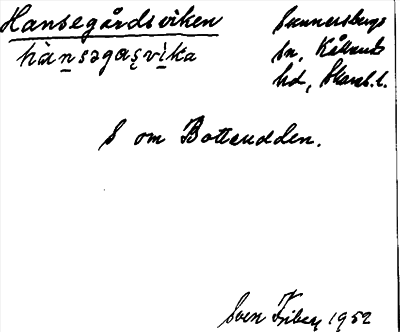 Hansegårdsviken
hànsəgaṣvìka
Sunnersbergs
sn, Kållands
hd, Skarab. l.
S om Bottenudden.
Sven Friberg 1952